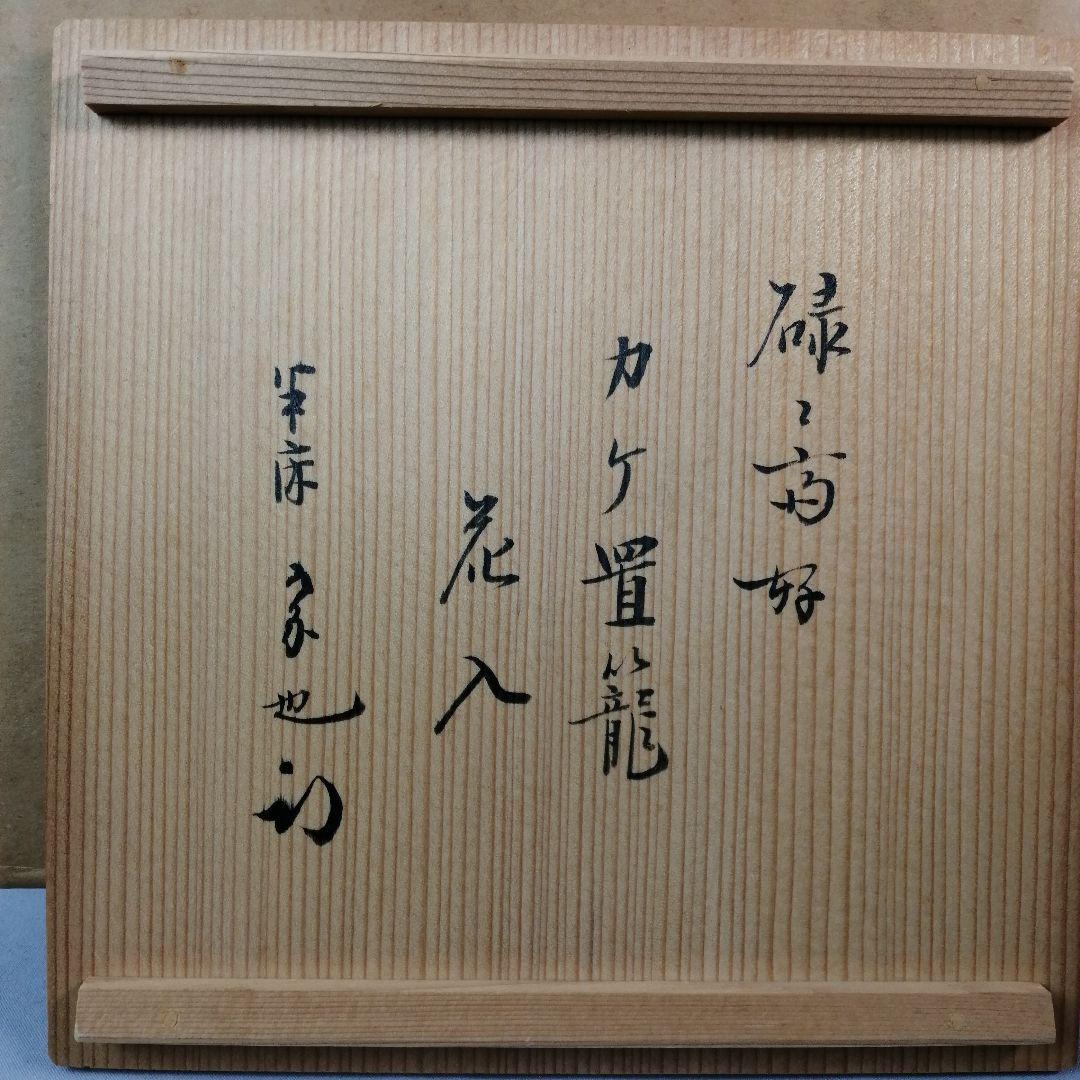 碌々斎好
カケ置籠
花入
半床 家也